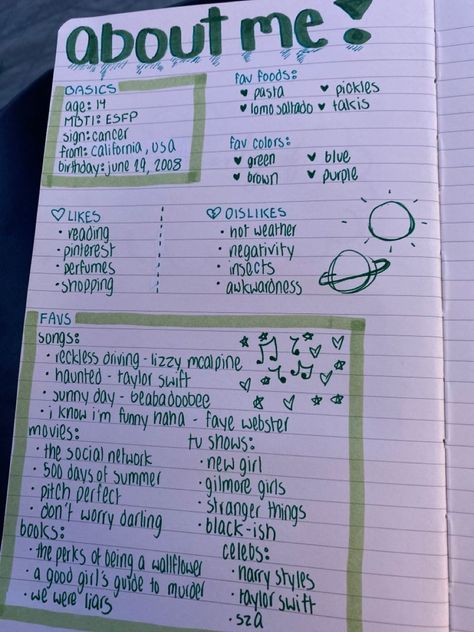 about me!
BASICS
age: 14
MBTI: ESFP
sign: cancer
from: california, usa
birthday: june 29, 2008
fav foods:
pasta
pickles
lomo saltado
takis
fav colors:
green
blue
brown
purple
LIKES
• reading
• pinterest
• perfumes
• shopping
DISLIKES
• hot weather
• negativity
• insects
• awkwardness
FAVS
songs:
• reckless driving - lizzy mcalpine
• haunted - taylor swift
• sunny day - beabadoobee
• i know i'm funny haha - faye webster
movies:
• the social network
• 500 days of summer
• pitch perfect
• don't worry darling
tv shows:
• new girl
• gilmore girls
• stranger things
• black-ish
books:
• the perks of being a wallflower
• a good girl's guide to murder
• we were liars
celebs:
• harry styles
• taylor swift
• sza